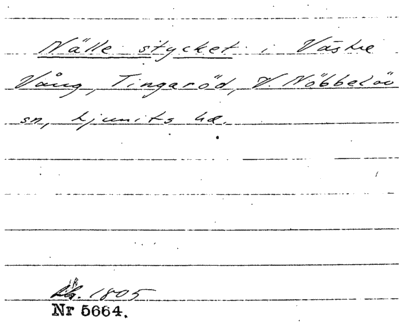 Nälle stycket i Västre
Vång, Tingaröd, V. Nöbbelöv
sn, Ljunits hd.
1805
Nr 5664.